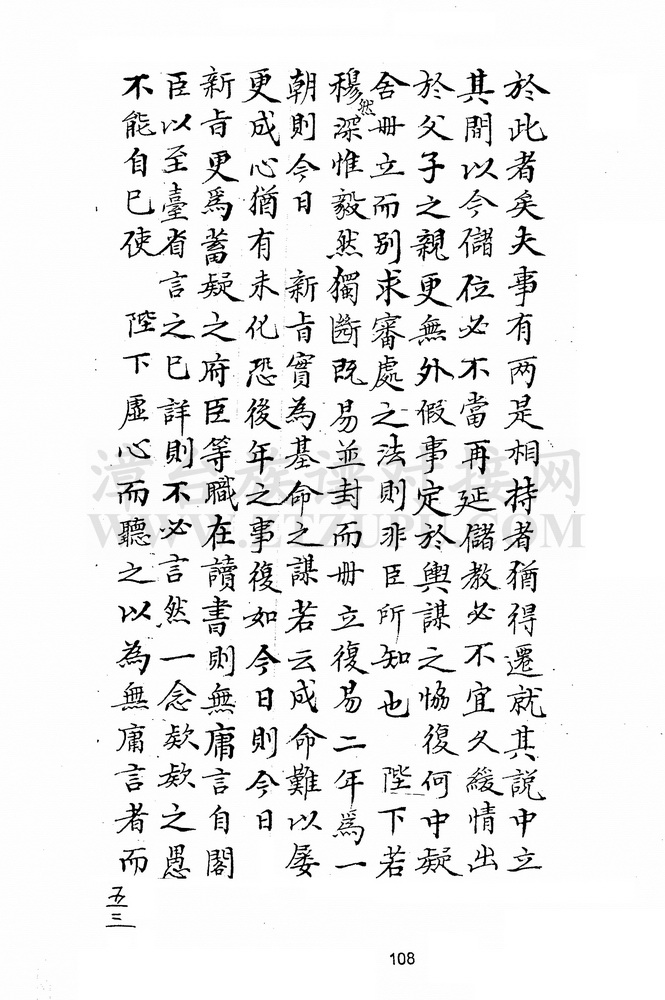 於此者矣夫事有两是相持者猶得遷就其說中立
其間以今儲位必不當再延儲教必不宜久緩情出
於父子之親更無外假事定於輿謀之恊復何中疑
舍冊立而別求審處之法則非臣所知也　陛下若
穆然深惟毅然獨斷既易並封而冊立復易二年爲一
朝則今日　新㫖實為基命之謀若云成命難以屡
更成心猶有未化恐後年之事復如今日則今日
新㫖更爲蓄疑之府臣等職在讀書則無庸言自閣
臣以至臺省言之已詳則不必言然一念欵欵之愚
不能自已使　陛下虛心而聽之以為無庸言者而
五三
108
漳台族谱对接网
WWW.ZTZUPU.COM